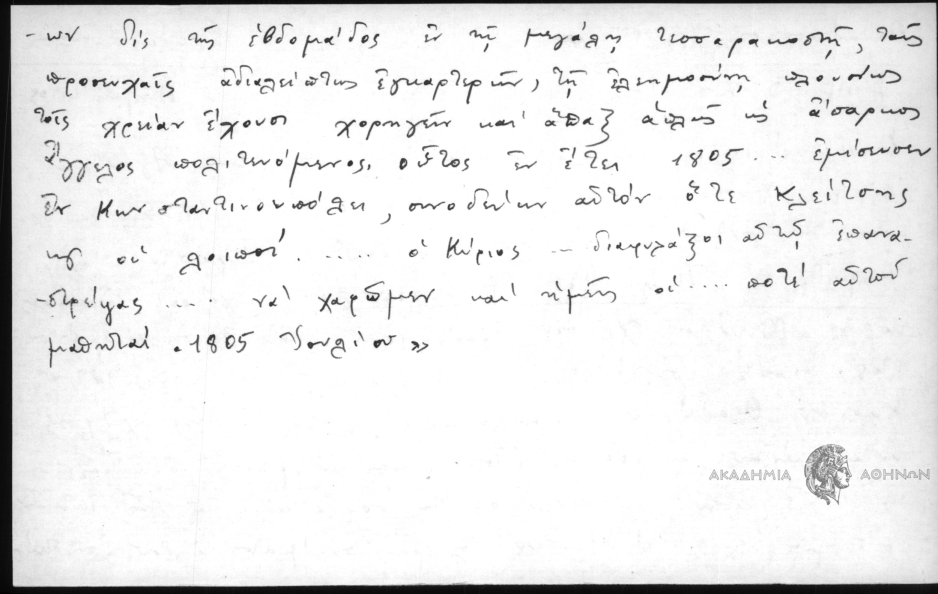 -ων δίς τῆς ἑβδομάδος ἐν τῇ μεγάλῃ τεσσαρακοστῇ, ταῖς
προσευχαῖς ἀδιαλείπτως ἐγκαρτερῶν, τῇ ἐλεημοσύνῃ πλουσίως
τοῖς χρείαν ἔχουσι χορηγῶν καί ἅπαξ ἁπλῶς ὡς ἄσαρκος
ἄγγελος πολιτευόμενος. οὗτος ἐν ἔτει 1805 ... ἐμίσευσεν
ἐν Κωνσταντινουπόλει, συνοδεύων αὐτόν ὅτε Κλείτσης
καί οἱ λοιποί. .... ὁ Κύριος — διαφυλάξοι αὐτῷ ἐπανα-
-στρέψας .... νά χαρῶμεν καί ἡμεῖς οἱ .... ποτέ αὐτοῦ
μαθηταί. 1805 Ἰουλίου »
ΑΚΑΔΗΜΙΑ ΑΘΗΝΩΝ